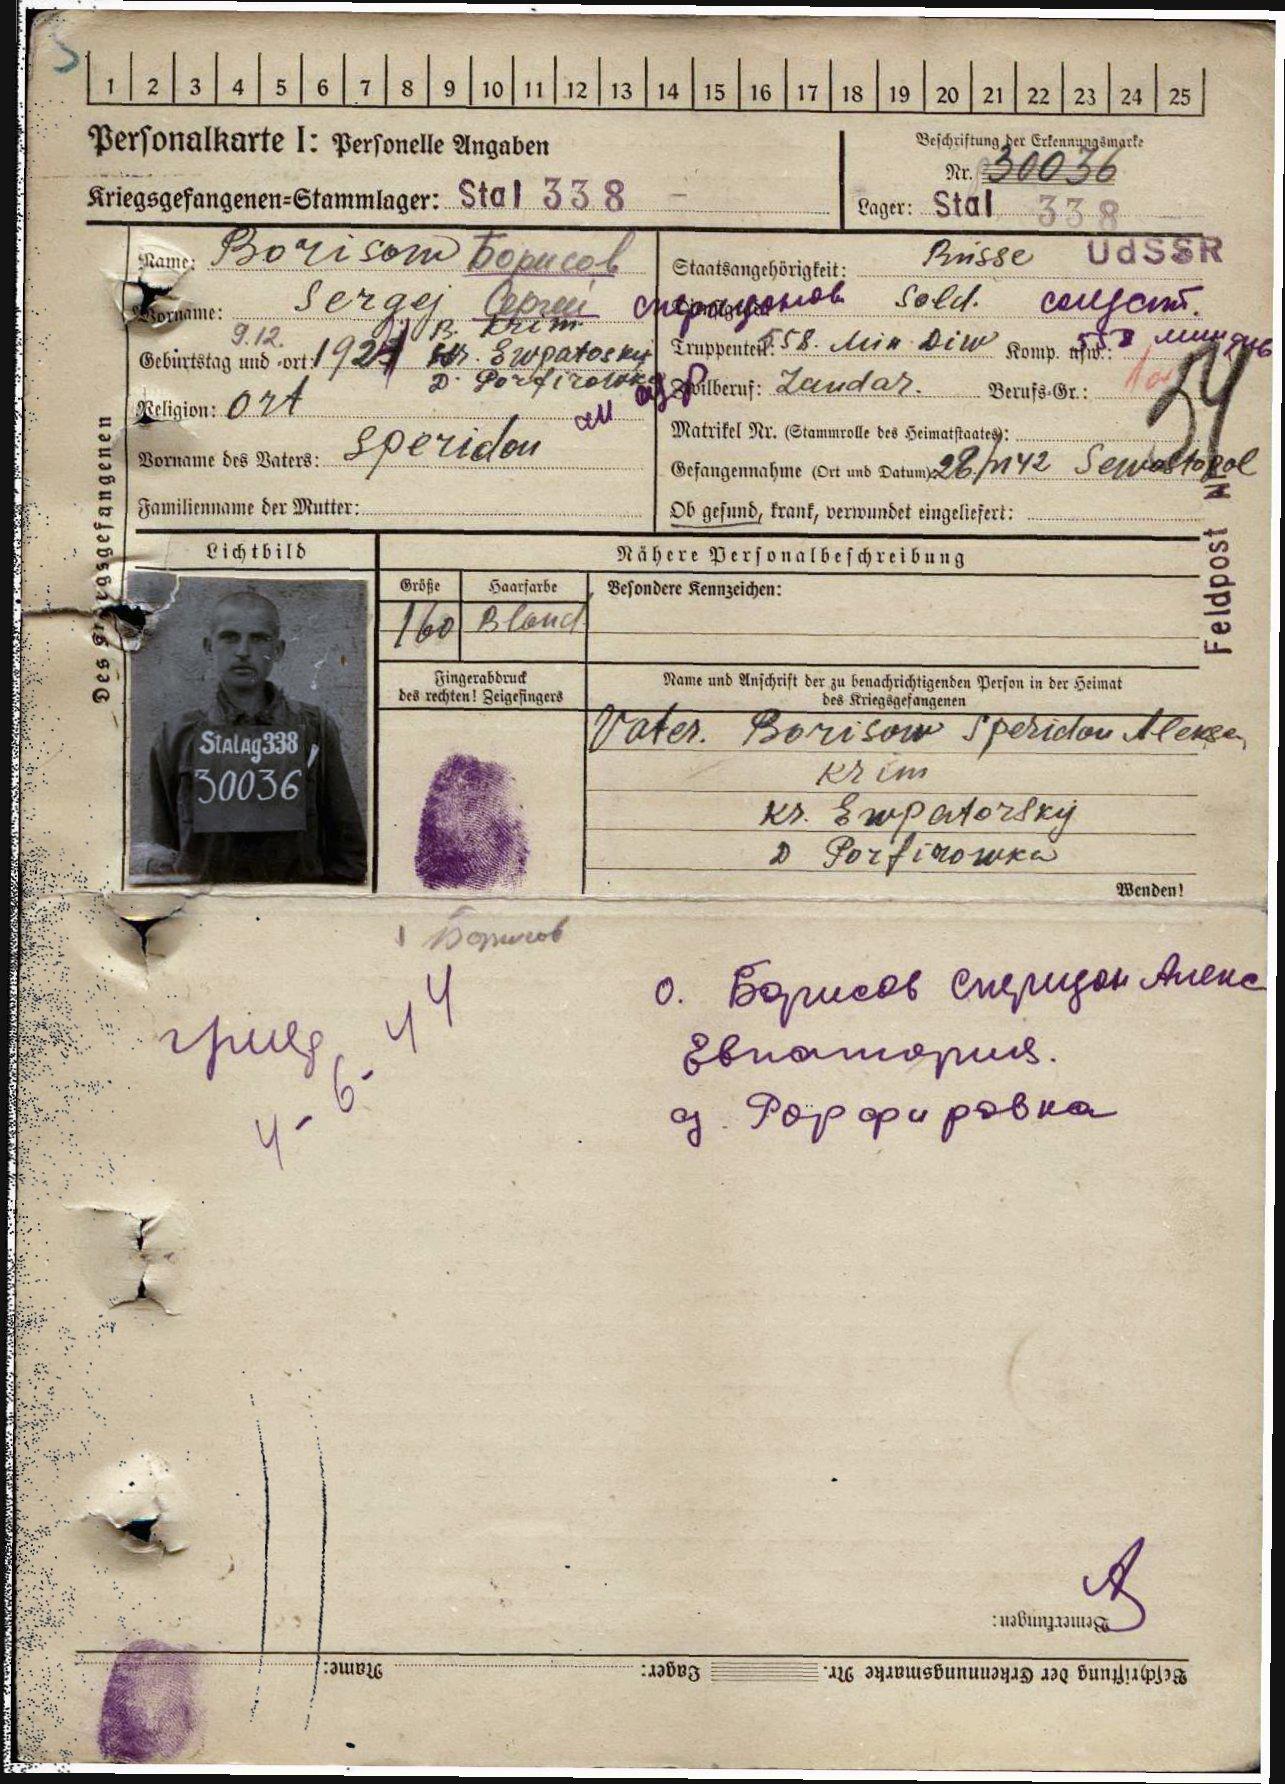 1 2 3 4 5 6 7 8 9 10 11 12 13 14 15 16 17 18 19 20 21 22 23 24 25
Personalkarte I: Personelle Angaben
Beschriftung der Erkennungsmarke
Nr. 30036
Kriegsgefangenen=Stammlager: Stal 338
Lager: Stal 338
Name: Borisow Борисов
Staatsangehörigkeit: Russe UdSSR
Vorname: Sergej Сергей
Sold. солдат.
9.12.
B. Krim
Geburtstag und -ort: 192 Kr. Ewpatorsky
D. Porfirowka
Truppenteil: 558. Min. Diw Komp. usw.:
Zivilberuf: Landar. Berufs-Gr.:
Religion: ort
Matrikel Nr. (Stammrolle des Heimatstaates):
Vorname des Vaters: Speridon
Gefangennahme (Ort und Datum): 42 Sewastopol
Familienname der Mutter:
Ob gesund, krank, verwundet eingeliefert:
Des Kriegsgefangenen
Feldpost Nr
Lichtbild
Nähere Personalbeschreibung
Größe Haarfarbe Besondere Kennzeichen:
160 Blond
STALAG 338
30036
Fingerabdruck
des rechten! Zeigefingers
Name und Anschrift der zu benachrichtigenden Person in der Heimat
des Kriegsgefangenen
Vater. Borisow Speridon Aleksa
Krim
Kr. Ewpatorsky
D Porfirowka
Wenden!
Борисов
о. Борисов Сперидон Алекс
Евпатория.
д. Порфировка
4-6-44
Bemerkungen:
Beschriftung der Erkennungsmarke Nr. Lager: Name: